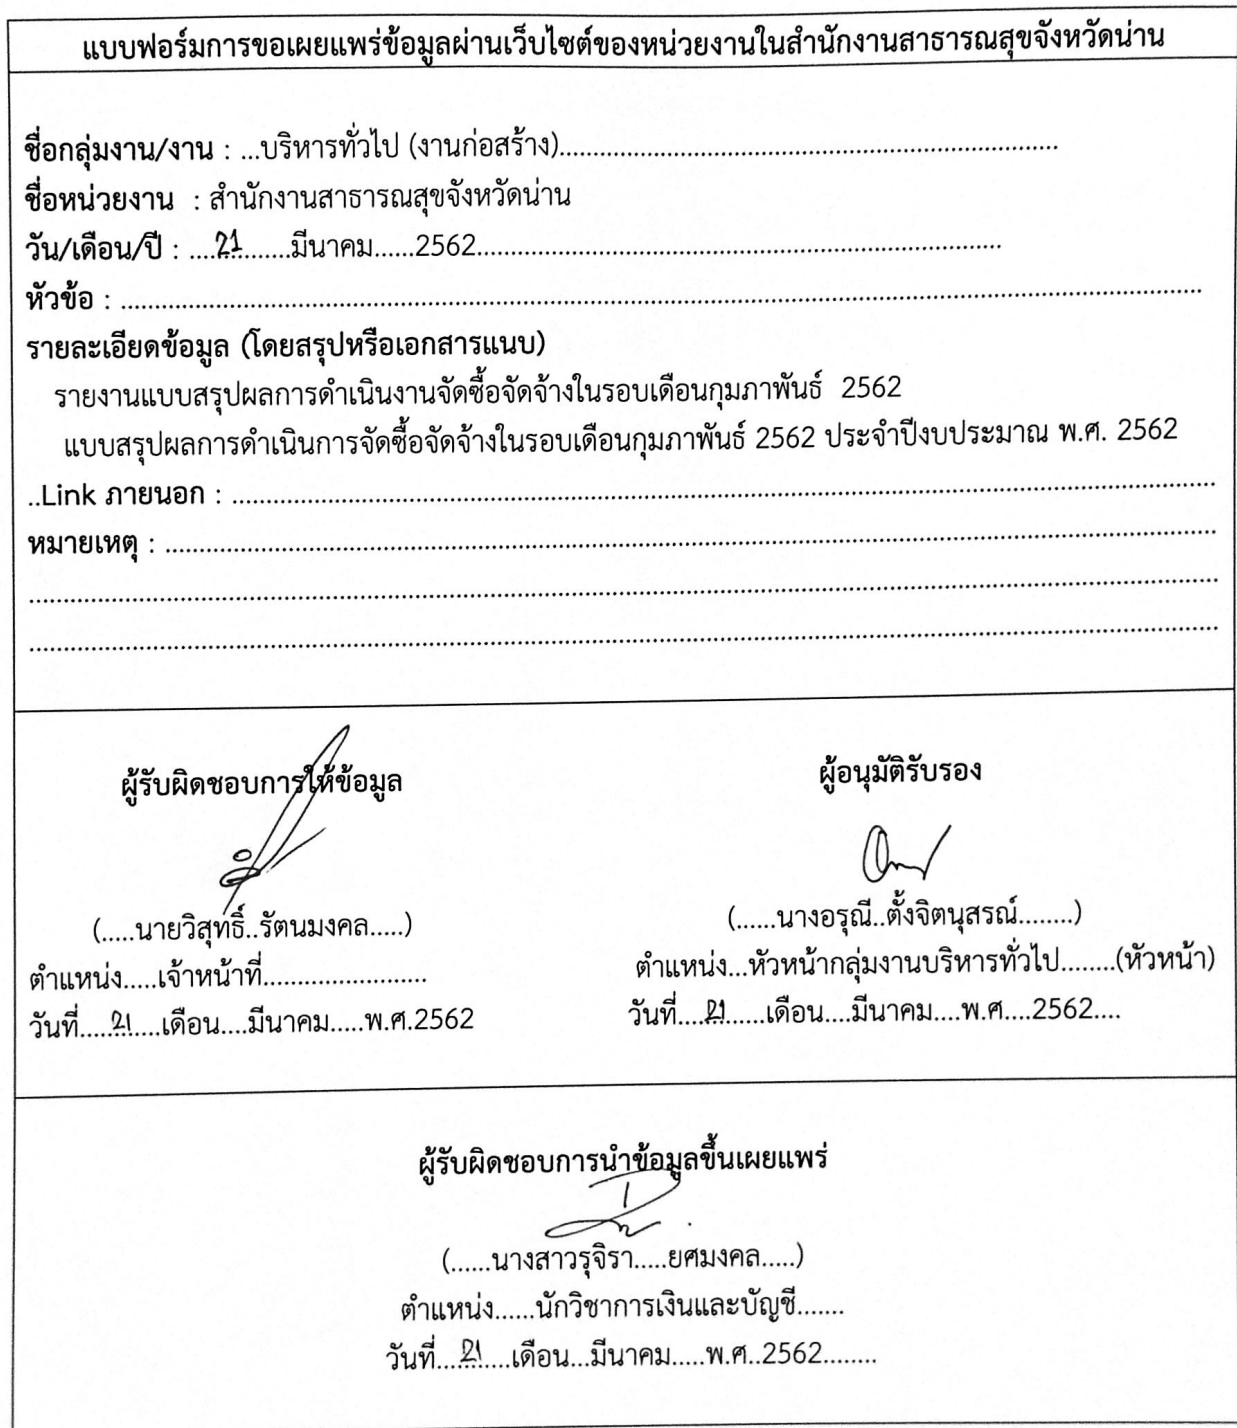 แบบฟอร์มการขอเผยแพร่ข้อมูลผ่านเว็บไซต์ของหน่วยงานในสำนักงานสาธารณสุขจังหวัดน่าน
ชื่อกลุ่มงาน/งาน : ...บริหารทั่วไป (งานก่อสร้าง)..........................................................................
ชื่อหน่วยงาน : สำนักงานสาธารณสุขจังหวัดน่าน
วัน/เดือน/ปี : ....21.........มีนาคม......2562..............................................................................
หัวข้อ : ................................................................................................................................
รายละเอียดข้อมูล (โดยสรุปหรือเอกสารแนบ)
รายงานแบบสรุปผลการดำเนินงานจัดซื้อจัดจ้างในรอบเดือนกุมภาพันธ์ 2562
แบบสรุปผลการดำเนินการจัดซื้อจัดจ้างในรอบเดือนกุมภาพันธ์ 2562 ประจำปีงบประมาณ พ.ศ. 2562
..Link ภายนอก : ....................................................................................................................
หมายเหตุ : ............................................................................................................................
ผู้รับผิดชอบการให้ข้อมูล
(.....นายวิสุทธิ์..รัตนมงคล.....)
ตำแหน่ง.....เจ้าหน้าที่........................
วันที่.....21.....เดือน....มีนาคม.....พ.ศ.2562
ผู้อนุมัติรับรอง
(......นางอรุณี..ตั้งจิตนุสรณ์........)
ตำแหน่ง...หัวหน้ากลุ่มงานบริหารทั่วไป........(หัวหน้า)
วันที่....21......เดือน....มีนาคม....พ.ศ....2562....
ผู้รับผิดชอบการนำข้อมูลขึ้นเผยแพร่
(......นางสาวรุจิรา.....ยศมงคล.....)
ตำแหน่ง......นักวิชาการเงินและบัญชี.......
วันที่....21.....เดือน...มีนาคม.....พ.ศ..2562........